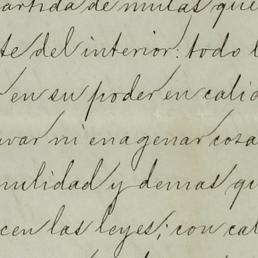 artida de mulas que
te del interior: todo l
r en su poder en calid
var ni enagenar cosa
nulidad y demas qu
cen las leyes; con cal